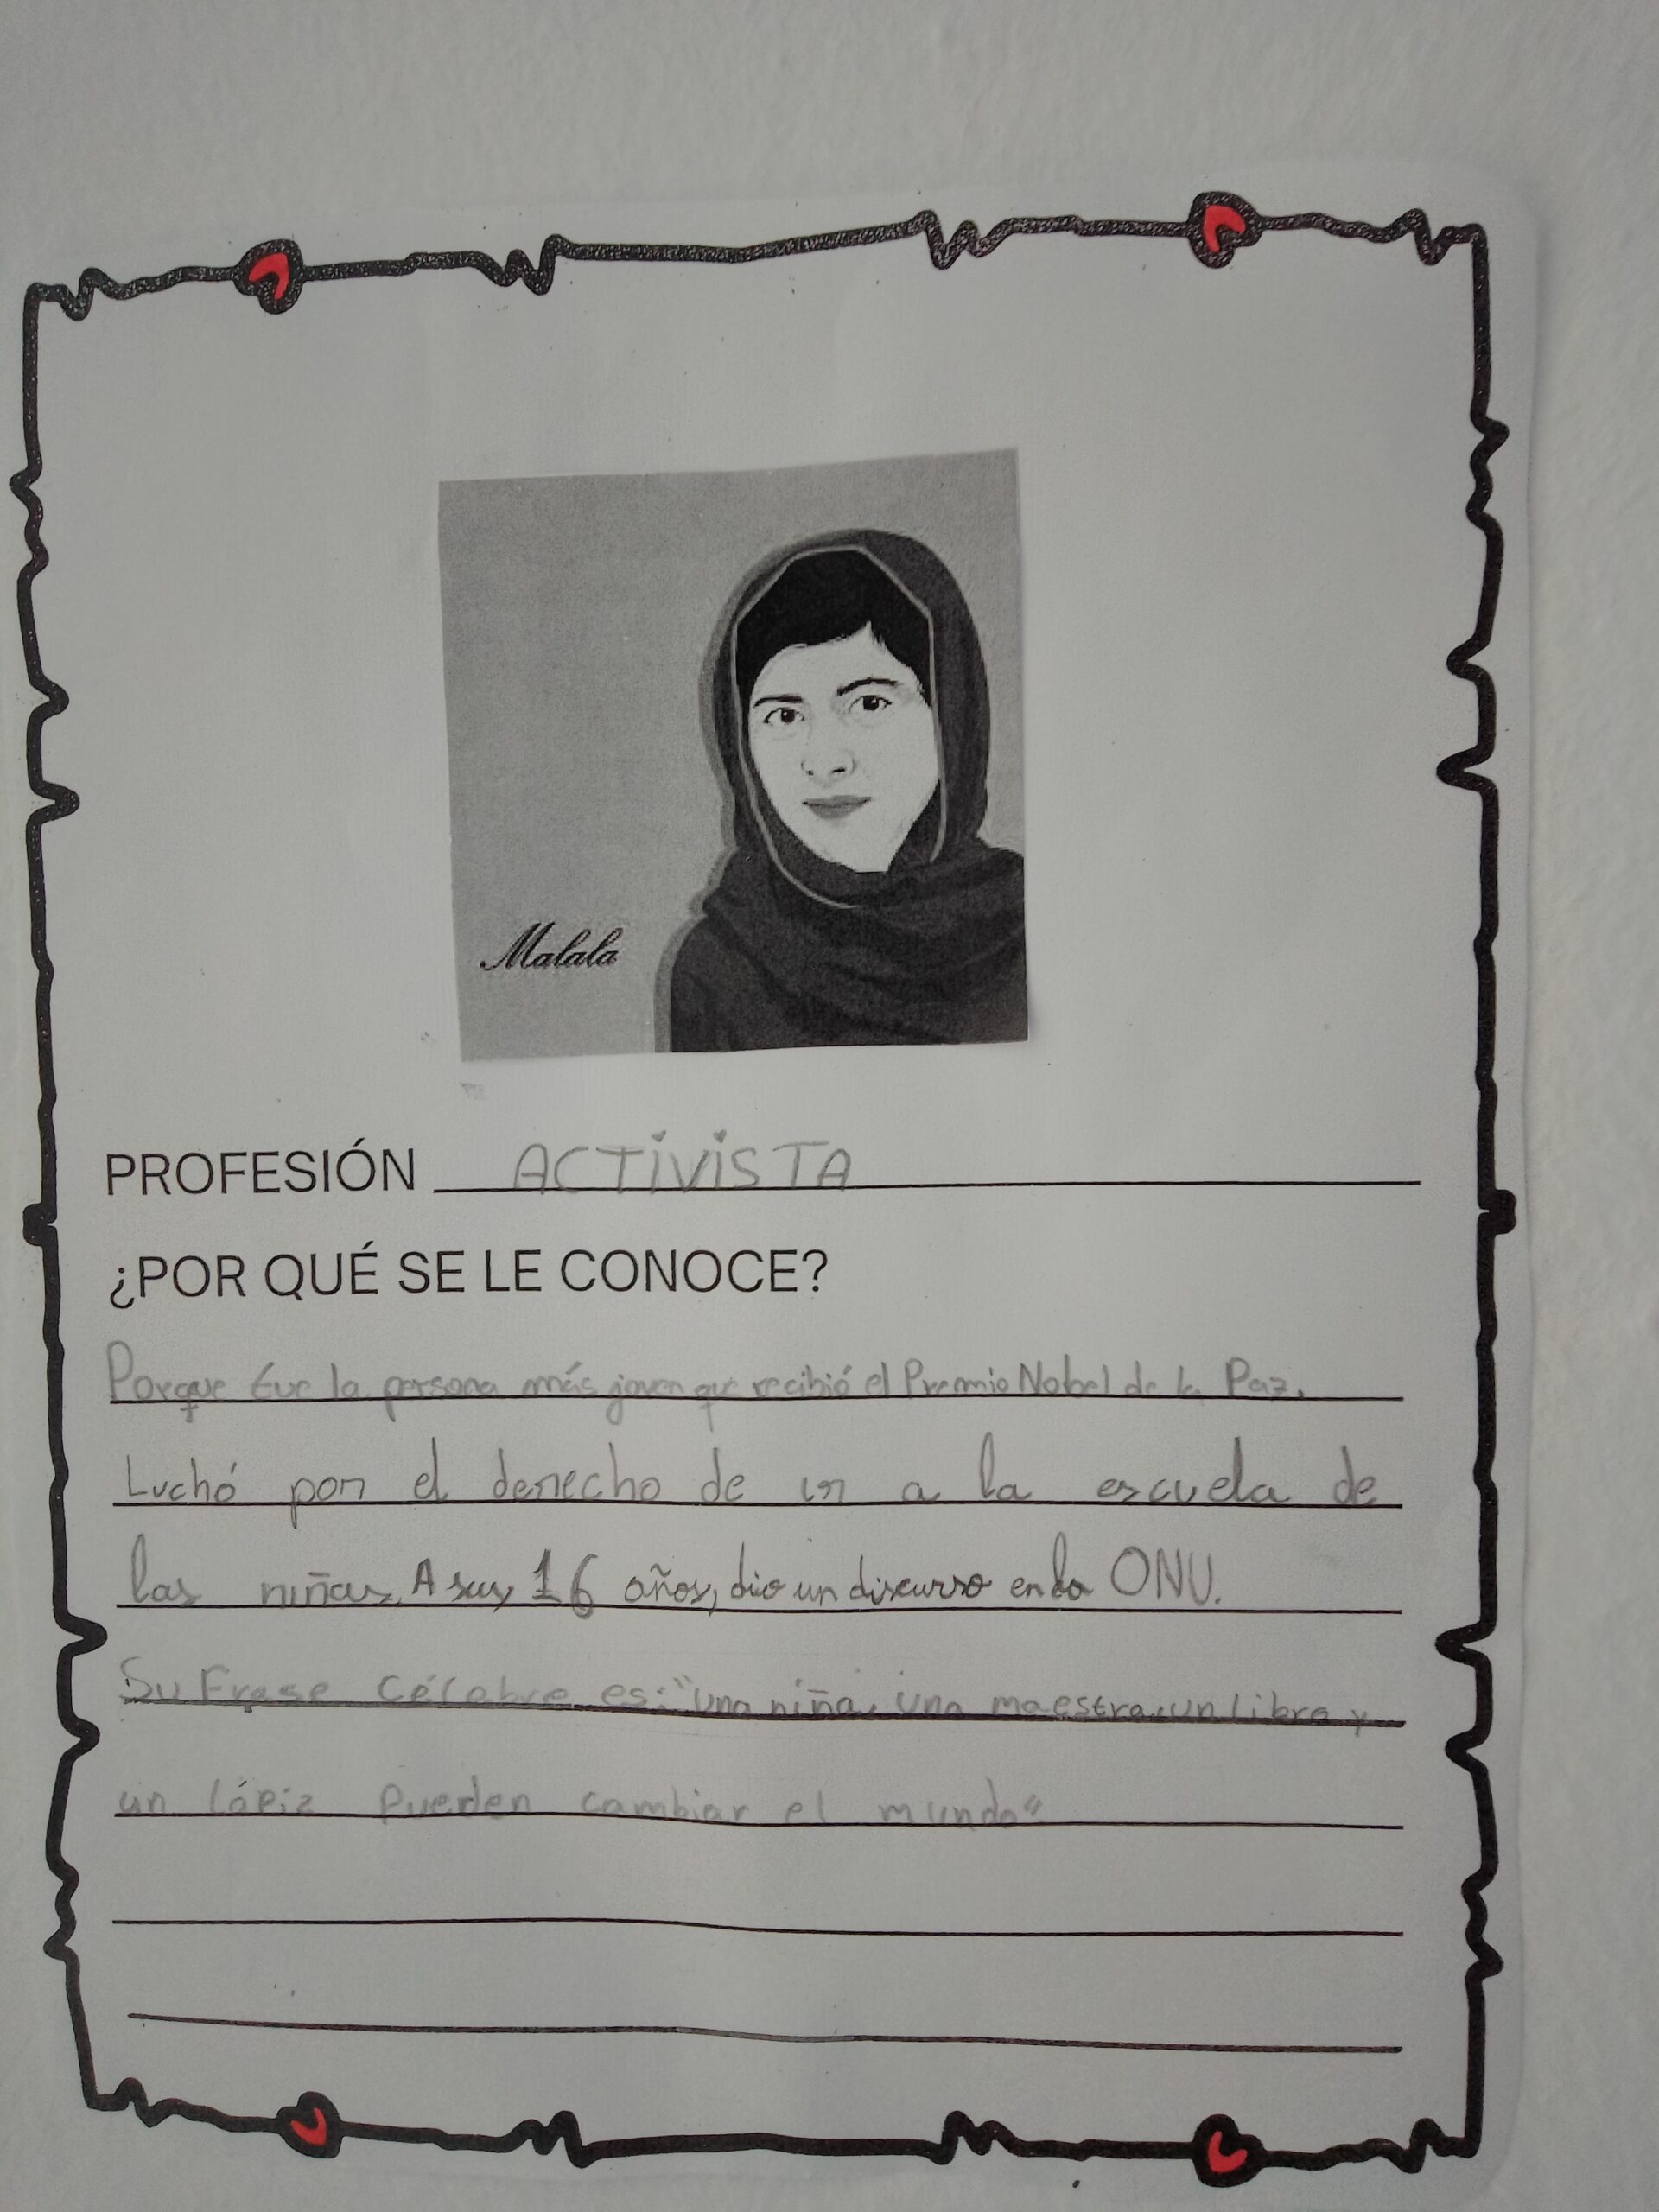 Malala
PROFESIÓN ACTIVISTA
¿POR QUÉ SE LE CONOCE?
Porque fue la persona más joven que recibió el Premio Nobel de la Paz.
Luchó por el derecho de ir a la escuela de
las niñas. A sus 16 años, dio un discurso en la ONU.
Su Frase célebre es: "Una niña, una maestra, un libro y
un lápiz pueden cambiar el mundo"